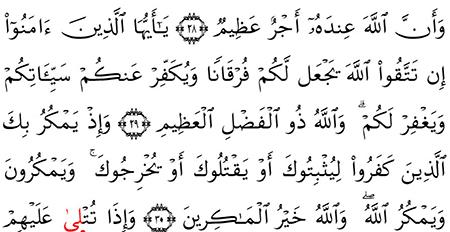 وَأَنَّ ٱللَّهَ عِندَهُۥٓ أَجْرٌ عَظِيمٌ ﴿٢٨﴾ يَـٰٓأَيُّهَا ٱلَّذِينَ ءَامَنُوٓا۟
إِن تَتَّقُوا۟ ٱللَّهَ يَجْعَل لَّكُمْ فُرْقَانًا وَيُكَفِّرْ عَنكُمْ سَيِّـَٔاتِكُمْ
وَيَغْفِرْ لَكُمْ ۗ وَٱللَّهُ ذُو ٱلْفَضْلِ ٱلْعَظِيمِ ﴿٢٩﴾ وَإِذْ يَمْكُرُ بِكَ
ٱلَّذِينَ كَفَرُوا۟ لِيُثْبِتُوكَ أَوْ يَقْتُلُوكَ أَوْ يُخْرِجُوكَ ۚ وَيَمْكُرُونَ
وَيَمْكُرُ ٱللَّهُ ۖ وَٱللَّهُ خَيْرُ ٱلْمَـٰكِرِينَ ﴿٣٠﴾ وَإِذَا تُتْلَىٰ عَلَيْهِمْ